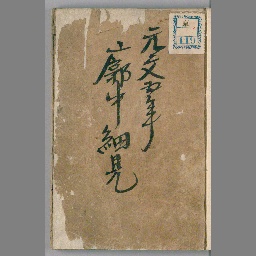 元文五年
廓中細見
119